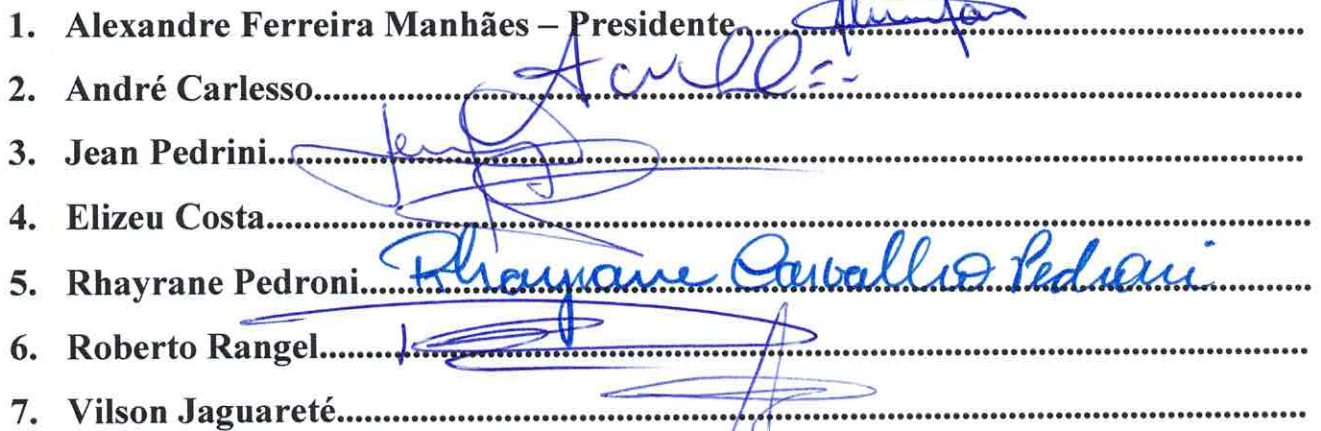 1. Alexandre Ferreira Manhães – Presidente
2. André Carlesso
3. Jean Pedrini
4. Elizeu Costa
5. Rhayrane Pedroni Rhayrane Carvalho Pedroni
6. Roberto Rangel
7. Vilson Jaguareté